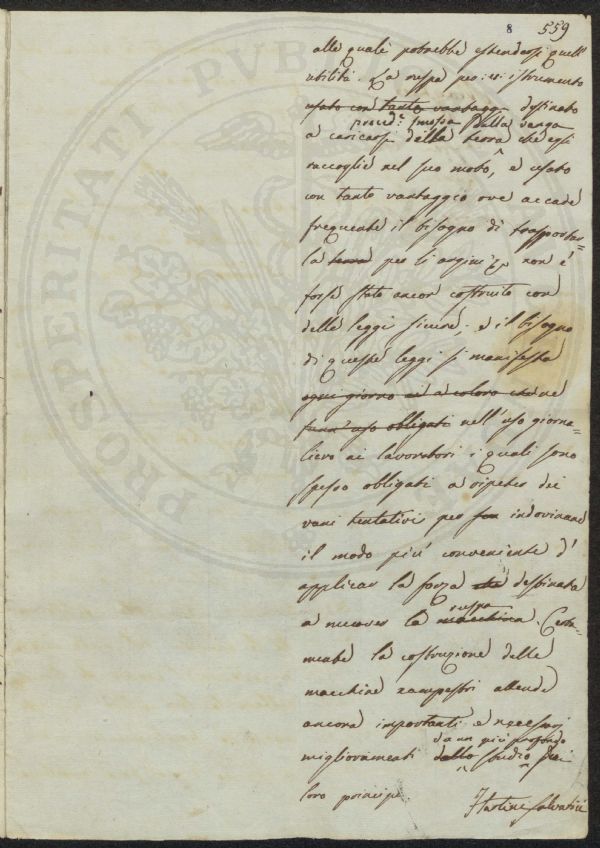 8 559
alle quali potrebbe estendersi quell'
utilità. La ruspa per es: istrumento
usato con tanto vantaggi destinato
smossa dalla vanga
a caricarsi della terra che egli
raccoglie nel suo moto, è usato
con tanto vantaggio ove accade
frequente il bisogno di trasportar=
la terra per li argini &c non è
forse stato ancor costruito con
delle leggi sicure; e il bisogno
di queste leggi si manifesta
ogni giorno ai a coloro che ne
fann' uso obligati nell'uso giorna=
liero ai lavoratori i quali sono
spesso obligati a ripeter dei
vani tentativi per indovinare
il modo più conveniente d'
applicar la forza che destinata
ruspa
a muover la macchina. Certa=
mente la costruzione delle
macchine campestri attende
ancora importanti e necessarj
da un più profondo
miglioramenti dallo studio dei
loro principj.
PROSPERITATI PVBLICAE